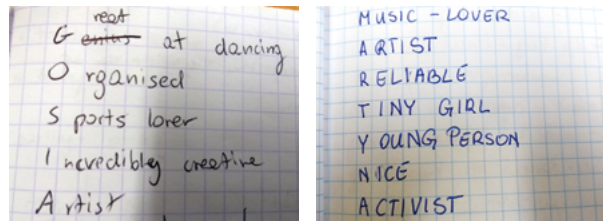 reat
G enius at dancing
O rganised
S ports lover
I ncredibly creative
A rtist
MUSIC - LOVER
ARTIST
RELIABLE
TINY GIRL
YOUNG PERSON
NICE
ACTIVIST